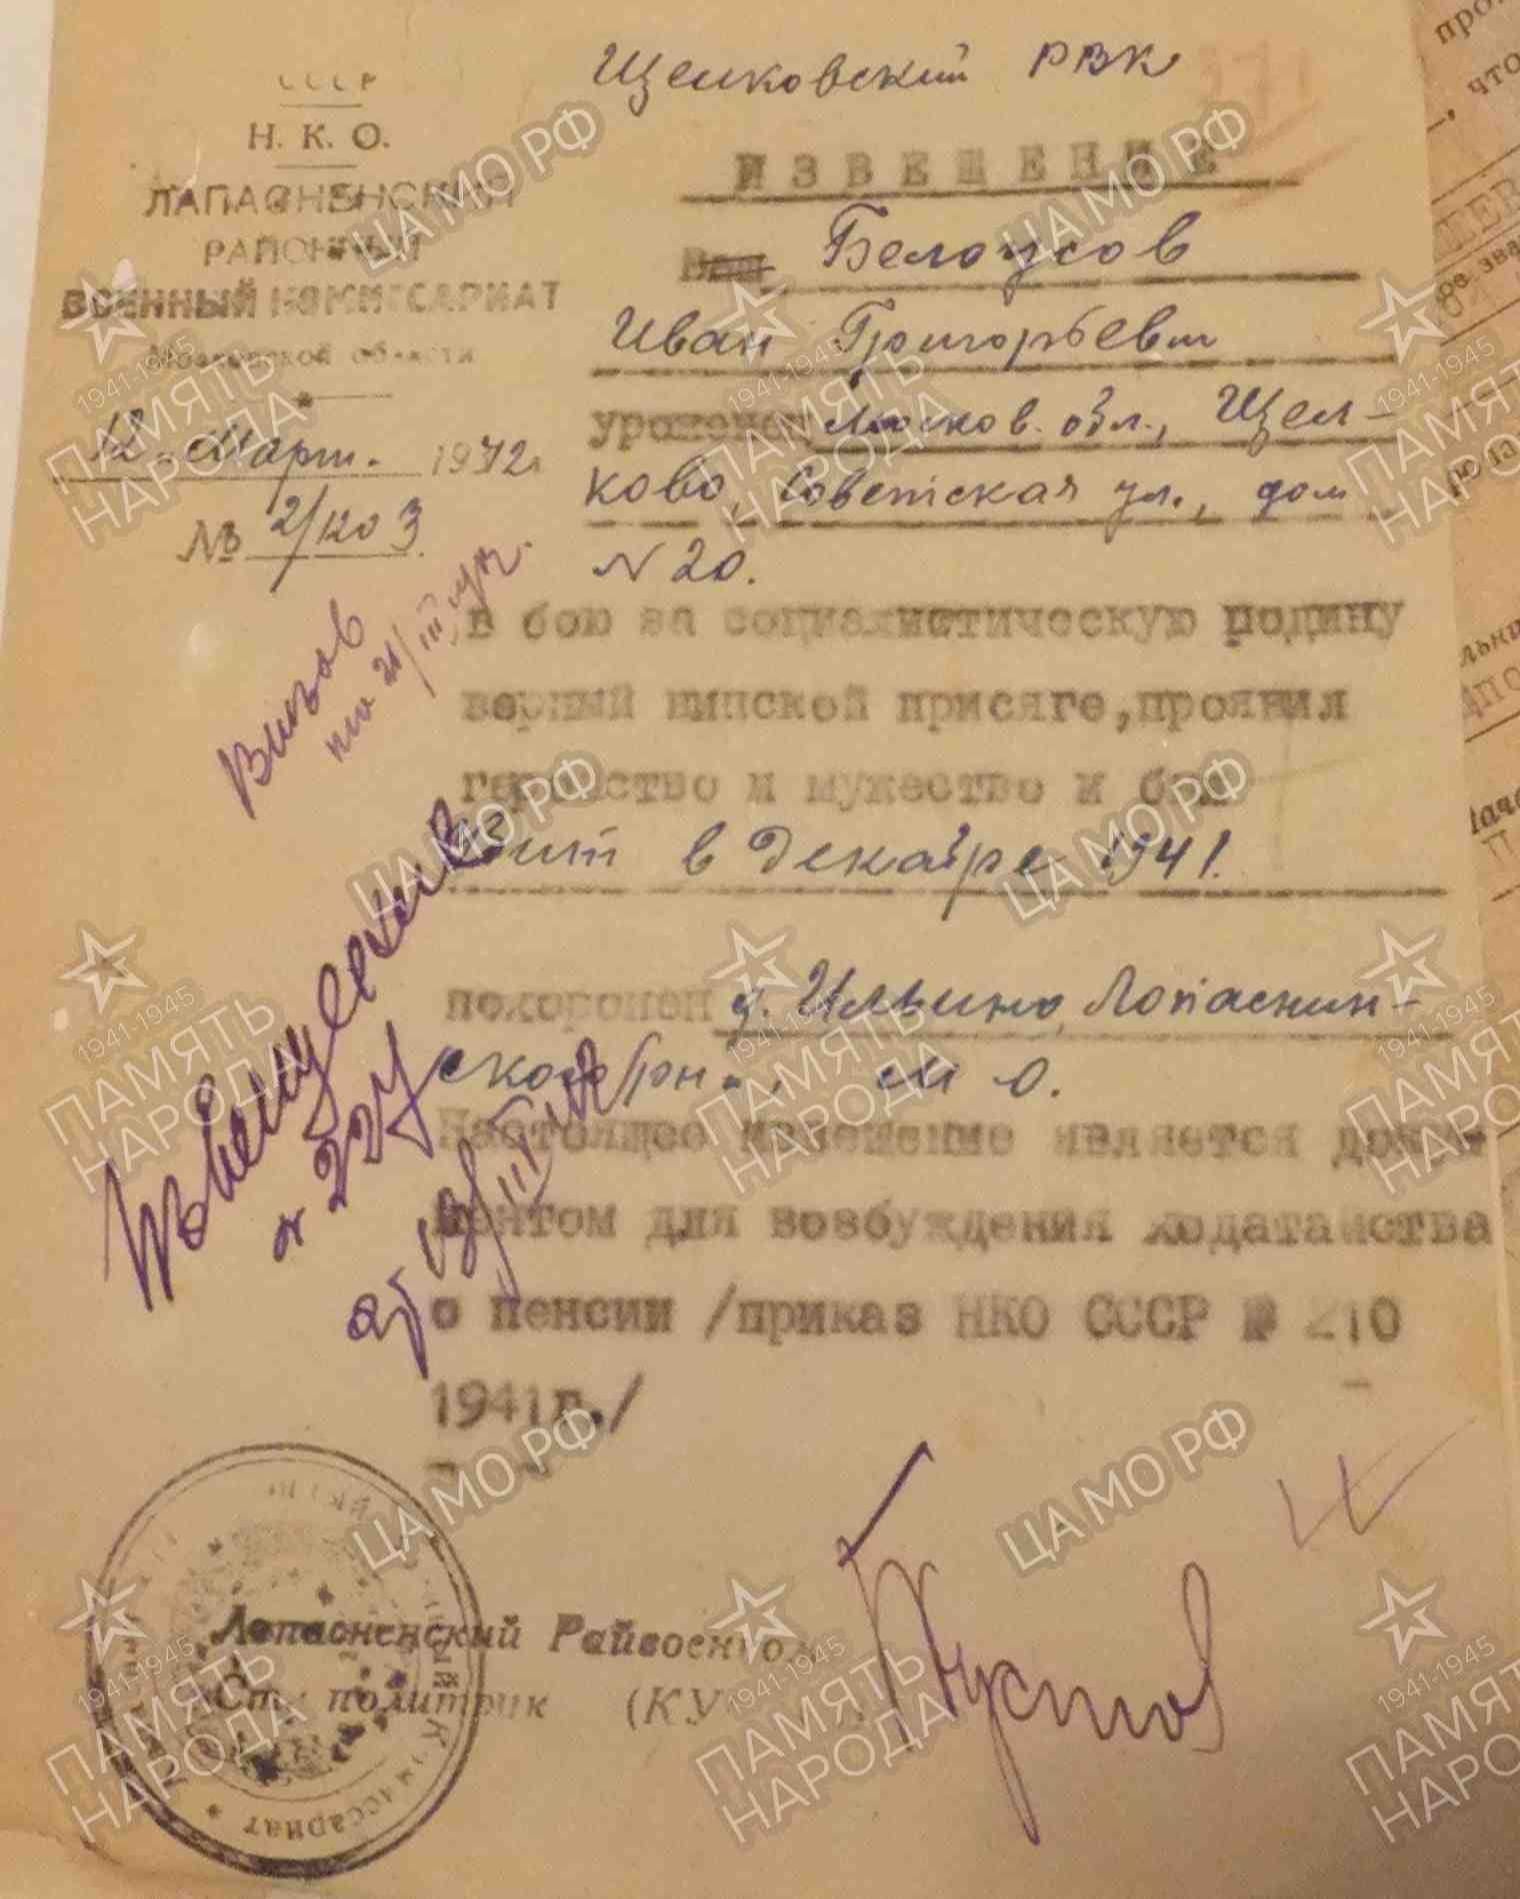 СССР
Н. К. О.
ЛАПАСНЕНСКИЙ
РАЙОННЫЙ
ВОЕННЫЙ КОМИССАРИАТ
Московской области
12 Март. 1942г
№ 2/ко3
Щелковский РВК
ИЗВЕЩЕНИЕ
Ваш Белоусов
Иван Григорьевич
уроженец Москов. обл., Щел-
ково, Советская ул., дом
N 20.
в бою за социалистическую родину
верный воинской присяге, проявил
геройство и мужество и был
Убит в Декабре 1941.
похоронен д. Ильино, Лопаснин-
ского рн., М О.
Настоящее извещение является доку-
ментом для возбуждения ходатайства
о пенсии /приказ НКО СССР № 210
1941г./
Вызов
на 21/III
227
от 18/III 42
Лопасненский Райвоенком
Ст. политрук
Комиссариат
ЦАМО РФ
1941-1945
ПАМЯТЬ
НАРОДА